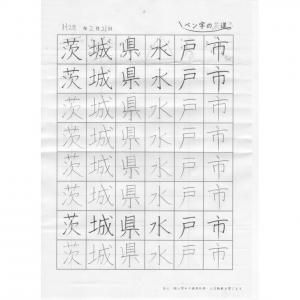 H28 年2月21日
ペン字の道
茨城県水戸市
茨城県水戸市
茨城県水戸市
茨城県水戸市
茨城県水戸市
茨城県水戸市
茨城県水戸市
茨城県水戸市